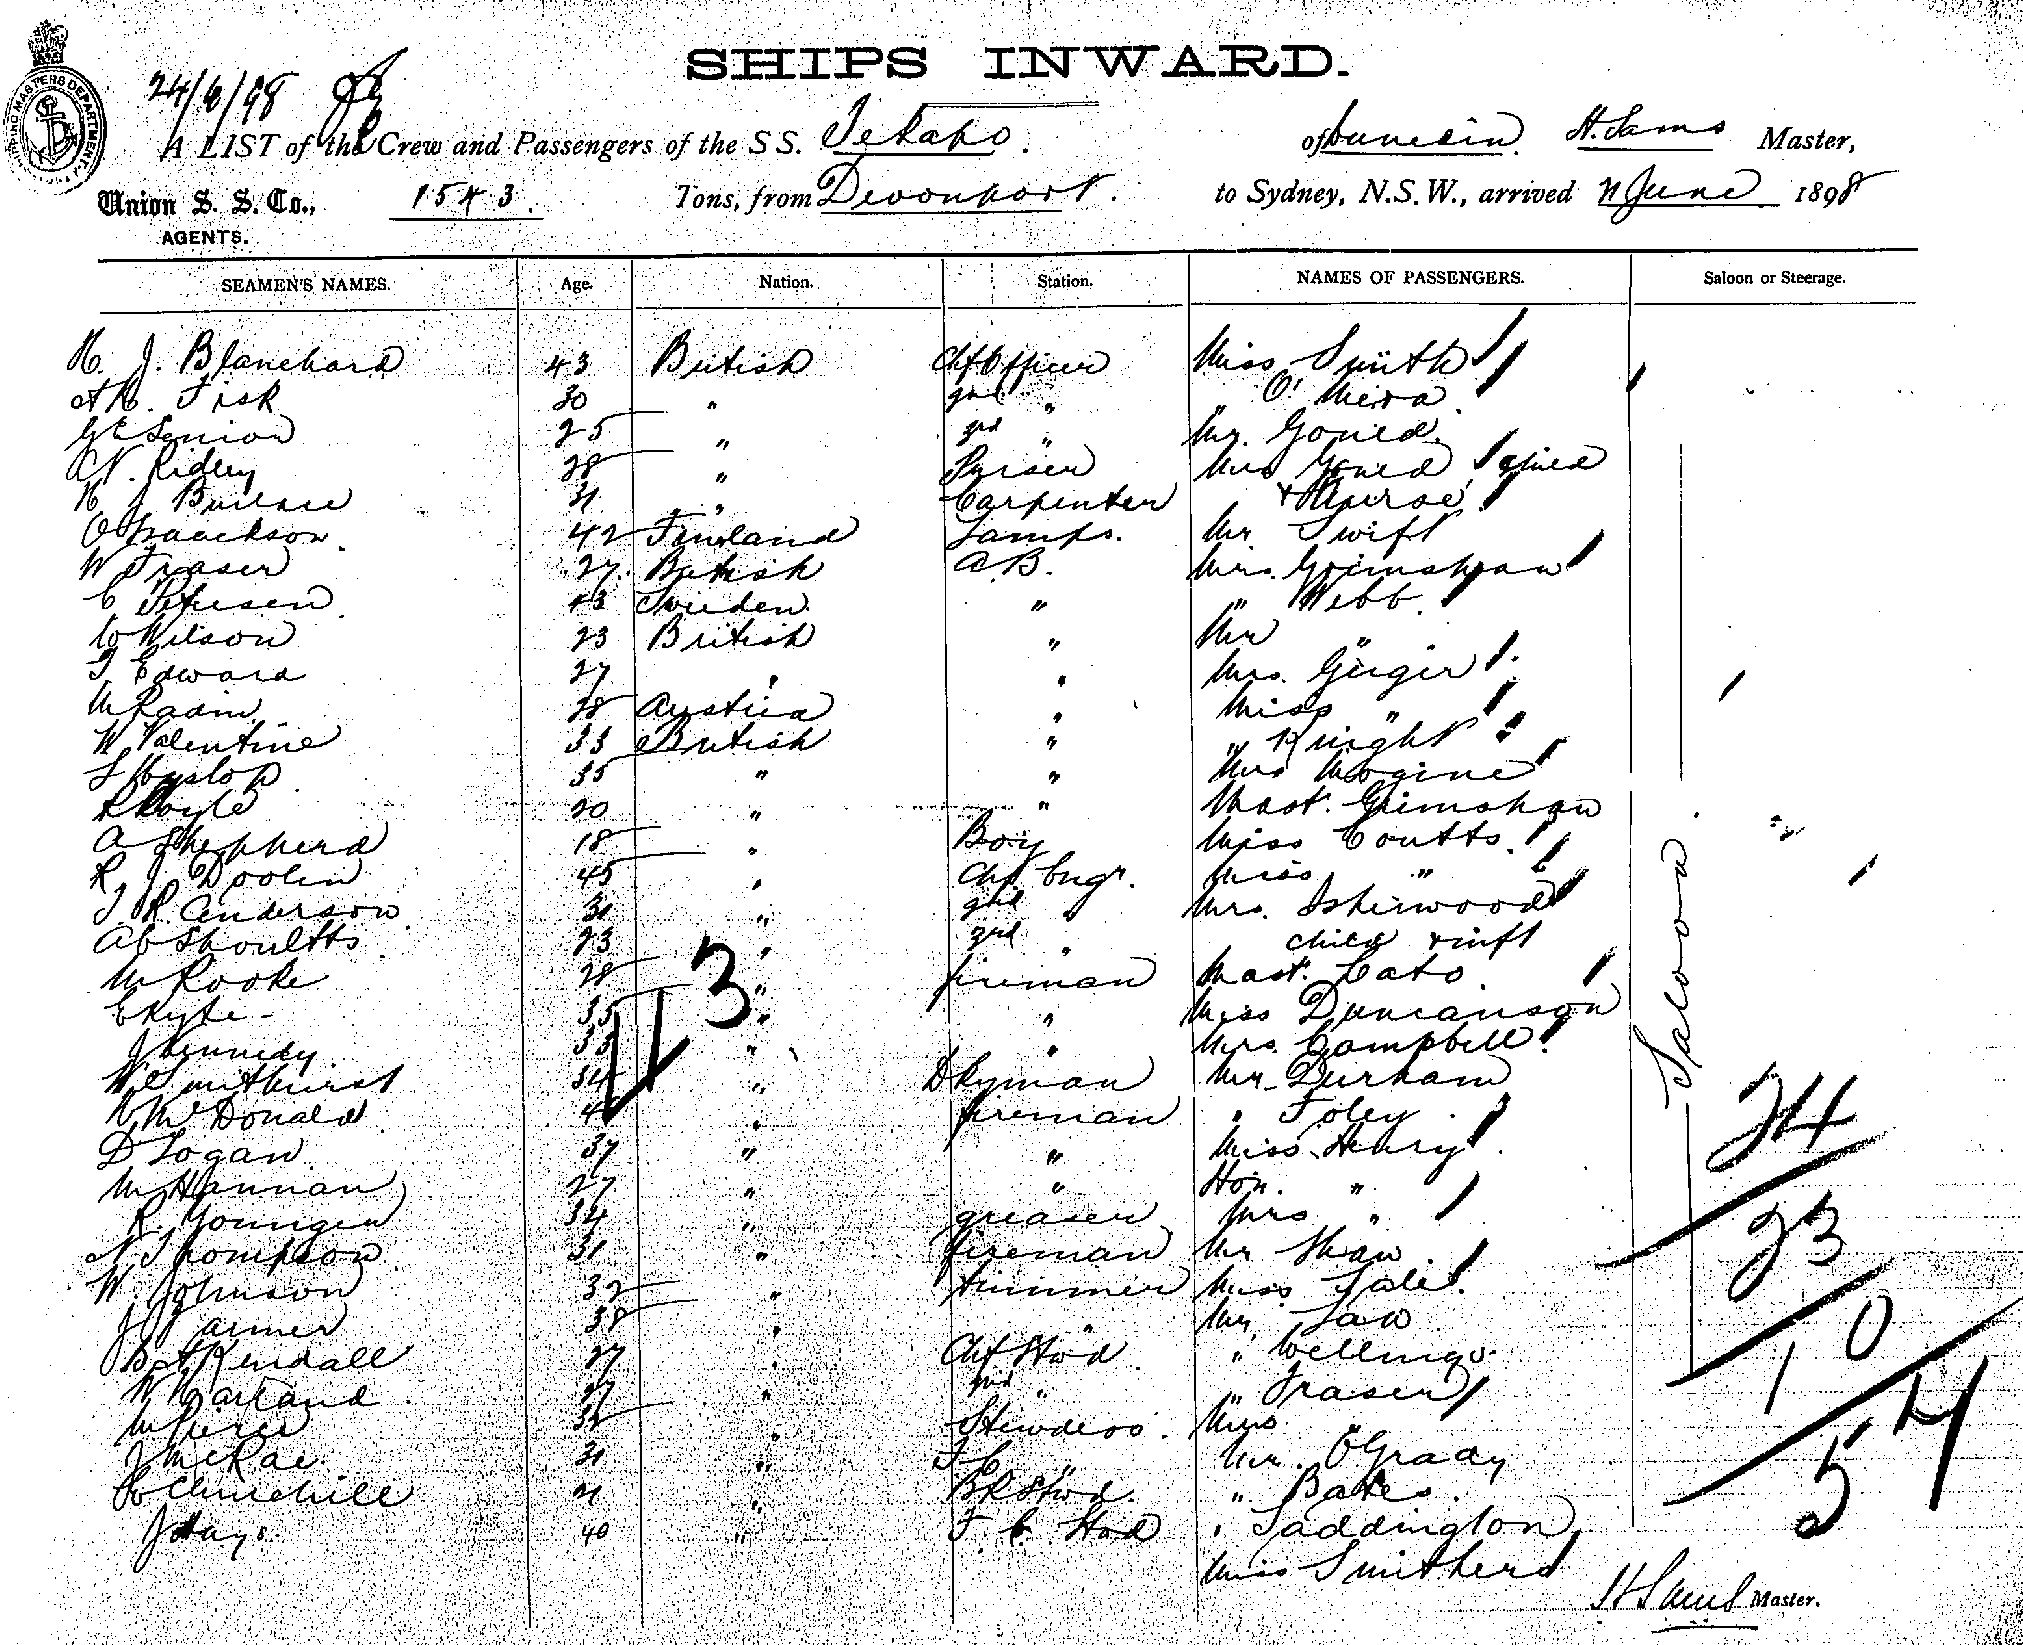 SHIPS INWARD.
24/6/98
A LIST of the Crew and Passengers of the S S. Tekapo. of Dunedin. H. Sams Master,
Union S. S. Co., 1543. Tons, from Devonport. to Sydney, N.S.W., arrived June 1898
AGENTS.
SEAMEN'S NAMES. Age. Nation. Station. NAMES OF PASSENGERS. Saloon or Steerage.
H. J. Blanchard 43 British Chf Officer Miss Smith
Fisk 30 " 2nd " " O'Meara
Senior 25 " 3rd " Mr. Gould
Ridley 28 " Purser Mrs Gould
H J 31 " Carpenter & Nurse
O Isaackson. 42 Finland Lamps. Mr Swift
W Fraser 27 British A.B. Mrs. Grimshaw
C Petersen 43 Sweden " " Webb
Wilson 23 British " Mr "
T Edward 27 " " Mrs. Geiger
M Radin 28 Austria " Miss "
W Valentine 33 British " " Knight
Hyslop 35 " " Mrs
Doyle 20 " " Mast. Grimshaw
A Shepherd 18 " Boy Miss Coutts.
R J Doolin 45 " Chf. Engr. Miss "
J. R. Anderson 31 " 2nd " Mrs. Isherwood
Shoultts 23 " 3rd " child & inft
M Rooke 28 " fireman Mast. Lato
E Kyte 35 " " Miss Duncanson
J Kennedy 33 " " Mrs. Campbell
W Smithurst 34 " Dkyman Mr Durham
McDonald " fireman " Foley
D Logan 37 " " Miss Henry
M Hannan 27 " " Hon. "
R. Younger 34 " greaser Mrs "
N Thompson 31 " fireman Mr Shaw
W. Johnson 32 " trimmer Miss
J Farmer 38 " " Mr Law
Kendall 27 " Chf Stwd "
W Garland 27 " 2nd " " Fraser
M " Stewdess. Mrs "
J McRae 31 " F C " Mr. O'Grady
Churchill 21 " Stwd. " Bates.
J Hays 40 " F. C. Stwd " Taddington
Miss Smithers
Saloon
24
23
10
54
H Sams Master.